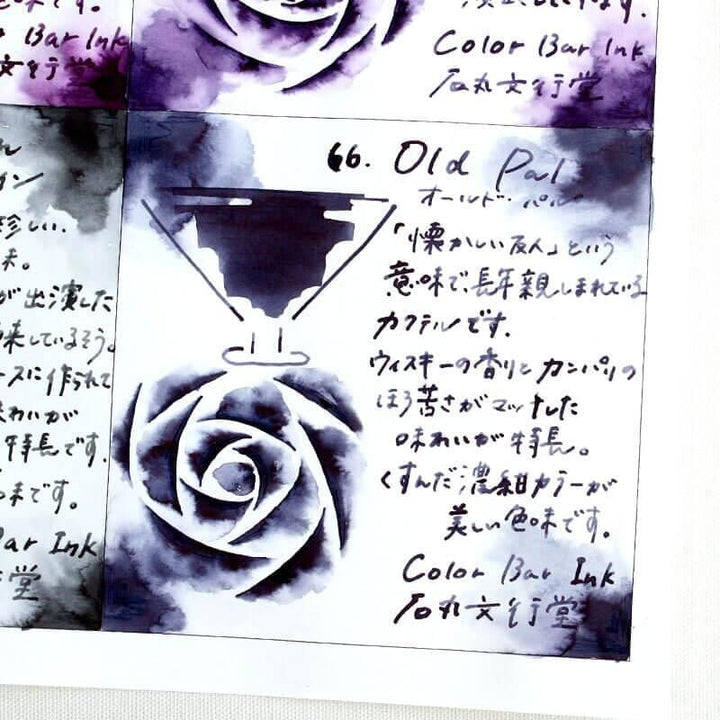 Color Bar Ink
石丸文行堂
Bar Ink
文行堂
珍しい.
味。
が出演した
来しているそう。
ースに作られて
味わいが
特長です.
味です。
Bar Ink
堂
66. Old Pal
オールド・パル
「懐かしい友人」という
意味で、長年親しまれている
カクテルです.
ウィスキーの香りとカンパリの
ほろ苦さがマッチした
味わいが特長。
くすんだ濃紺カラーが
美しい色味です。
Color Bar Ink
石丸文行堂